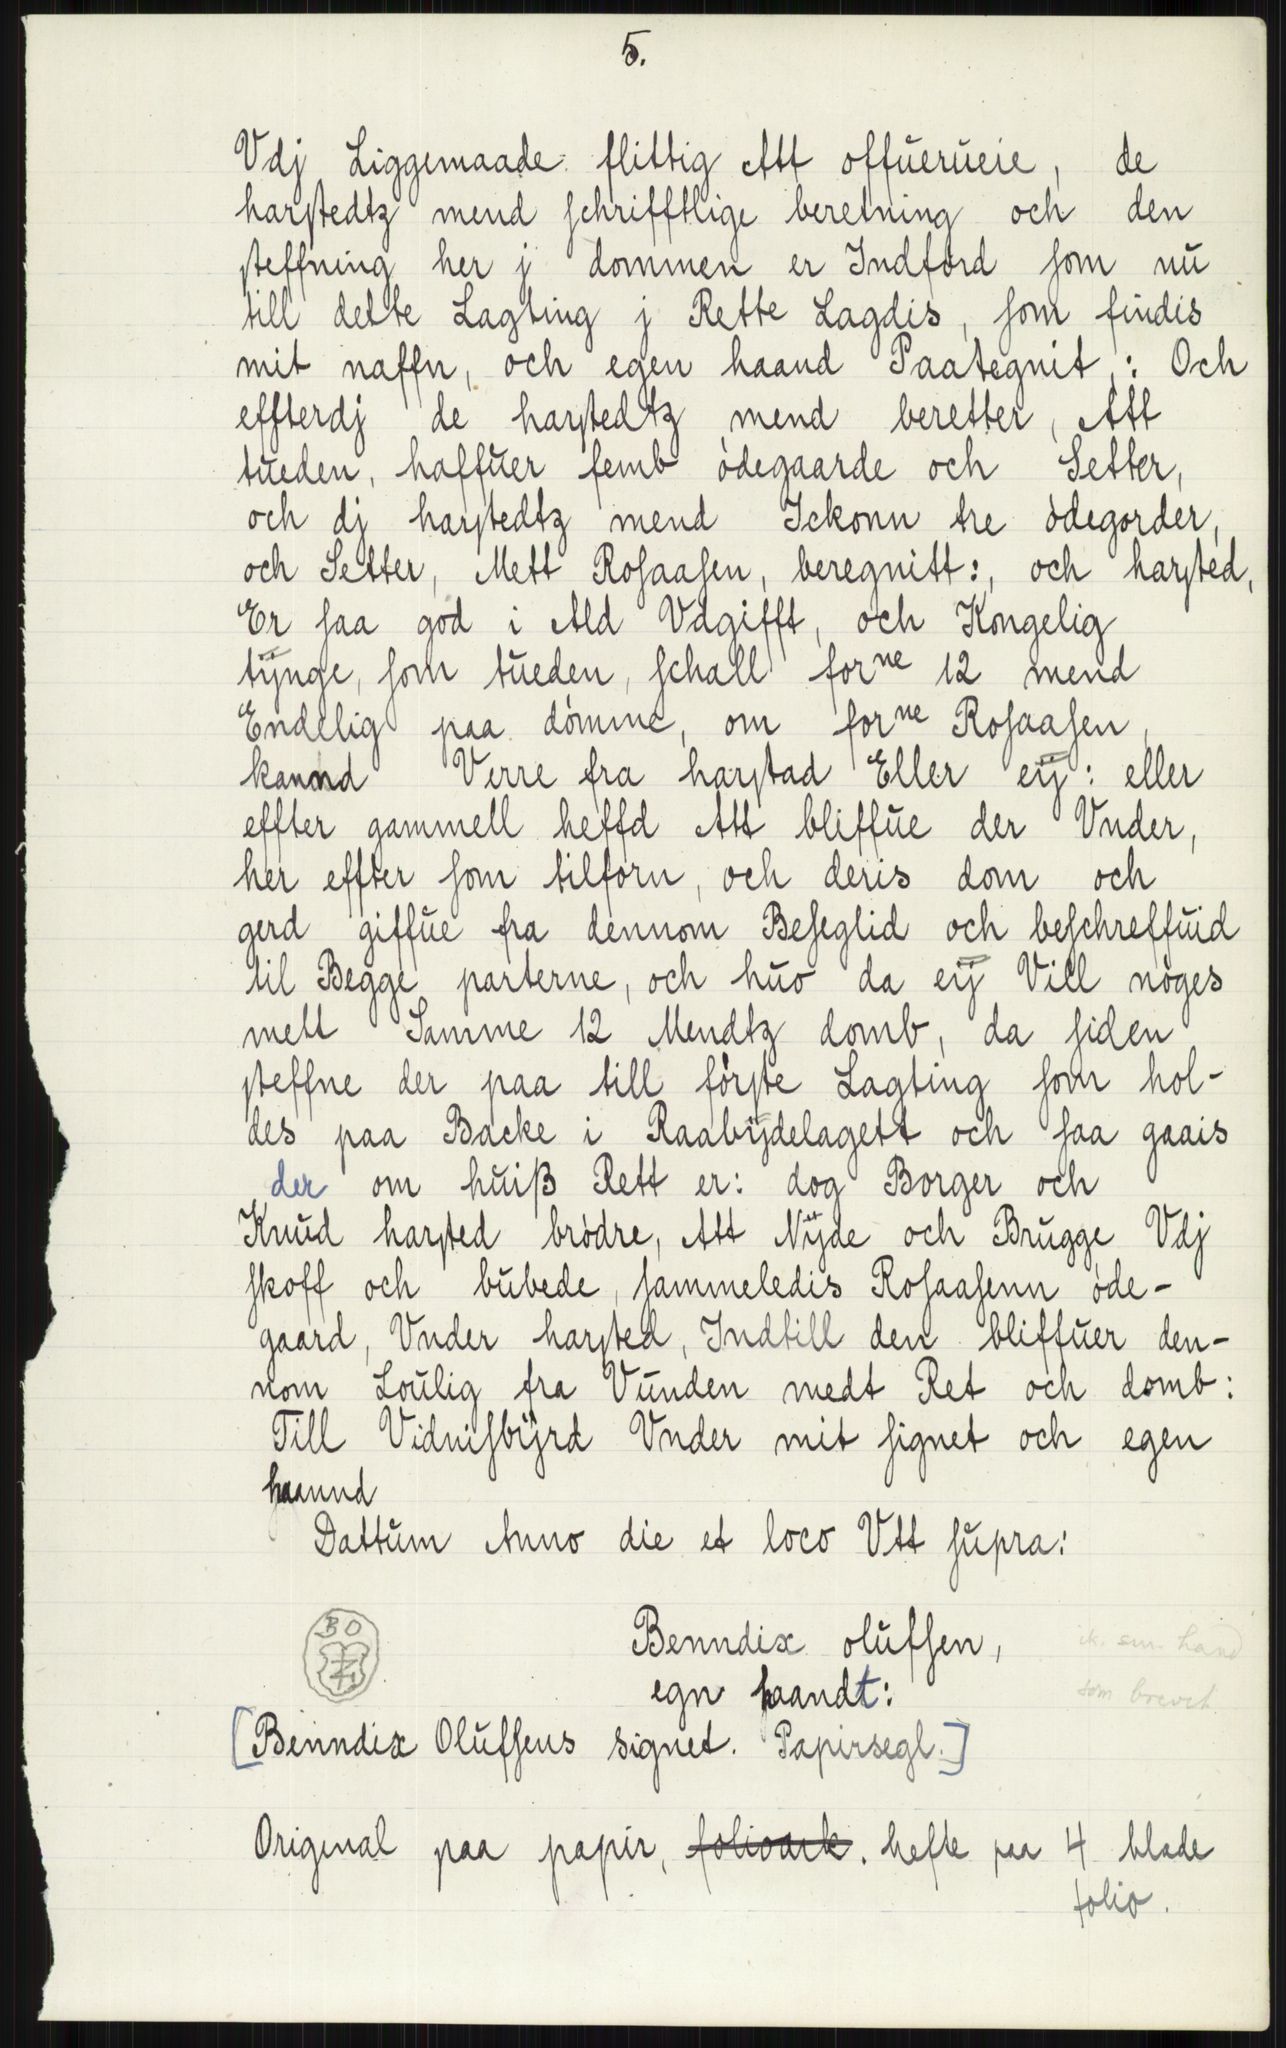 5.
Vdj Liggemaade flittig Att offuerueie, de
harstedtz mend schrifftlige beretning och den
steffning her j dommen er Indførd som nu
till dette Lagting j Rette Lagdis, som findis
mit naffn, och egen haand Paategnit,: Och
effterdj de harstedtz mend beretter, Att
tueden, haffuer femb ödegaarde och Setter,
och dj harstedtz mend Ickonn tre ödegorder,
och Setter, Mett Rosaasen, beregnitt:, och harsted,
Er saa god i Ald Vdgifft, och Kongelig
tÿnge, som tueden, schall forne 12 mend
Endelig paa dömme, om forne Rosaasen,
kannd Verre fra harstad Eller eÿ: eller
effter gammell heffd Att bliffue der Vnder,
her effter som tilforn, och deris dom och
gerd giffue fra dennom Beseglid och beschreffuid
til Begge parterne, och huo da eÿ Vill nöges
mett Samme 12 Mendtz domb, da siden
steffne der paa till förste Lagting som hol-
des paa Backe i Raabÿdelagett och saa gaais
der om huiß Rett er: dog Borger och
Knud harsted brödre, Att Nÿde och Brugge Vdj
skoff och bubede, sammeledis Rosaasenn öde-
gaard, Vnder harsted, Indtill den bliffuer den-
nom Loulig fra Vunden medt Ret och domb:
Till Vidnisbÿrd Vnder mit signet och egen
haannd
Dattum Anno die et loco Vtt supra:
BO
Benndix olufsen,
egn haandt:
som brevet
[Benndix Olufsens signet. Papirsegl.]
Original paa papir, folioark. hefte paa 4 blade
folio.